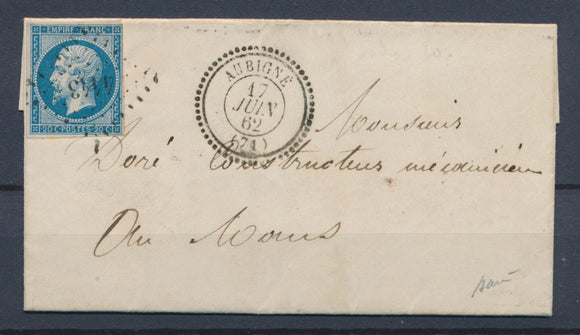 EMPIRE FRANC.
20 C. POSTES. 20 C.
AUBIGNÉ
17
JUIN
62
(71)
Monsieur
Doré Constructeur mécanicien
Au Mans